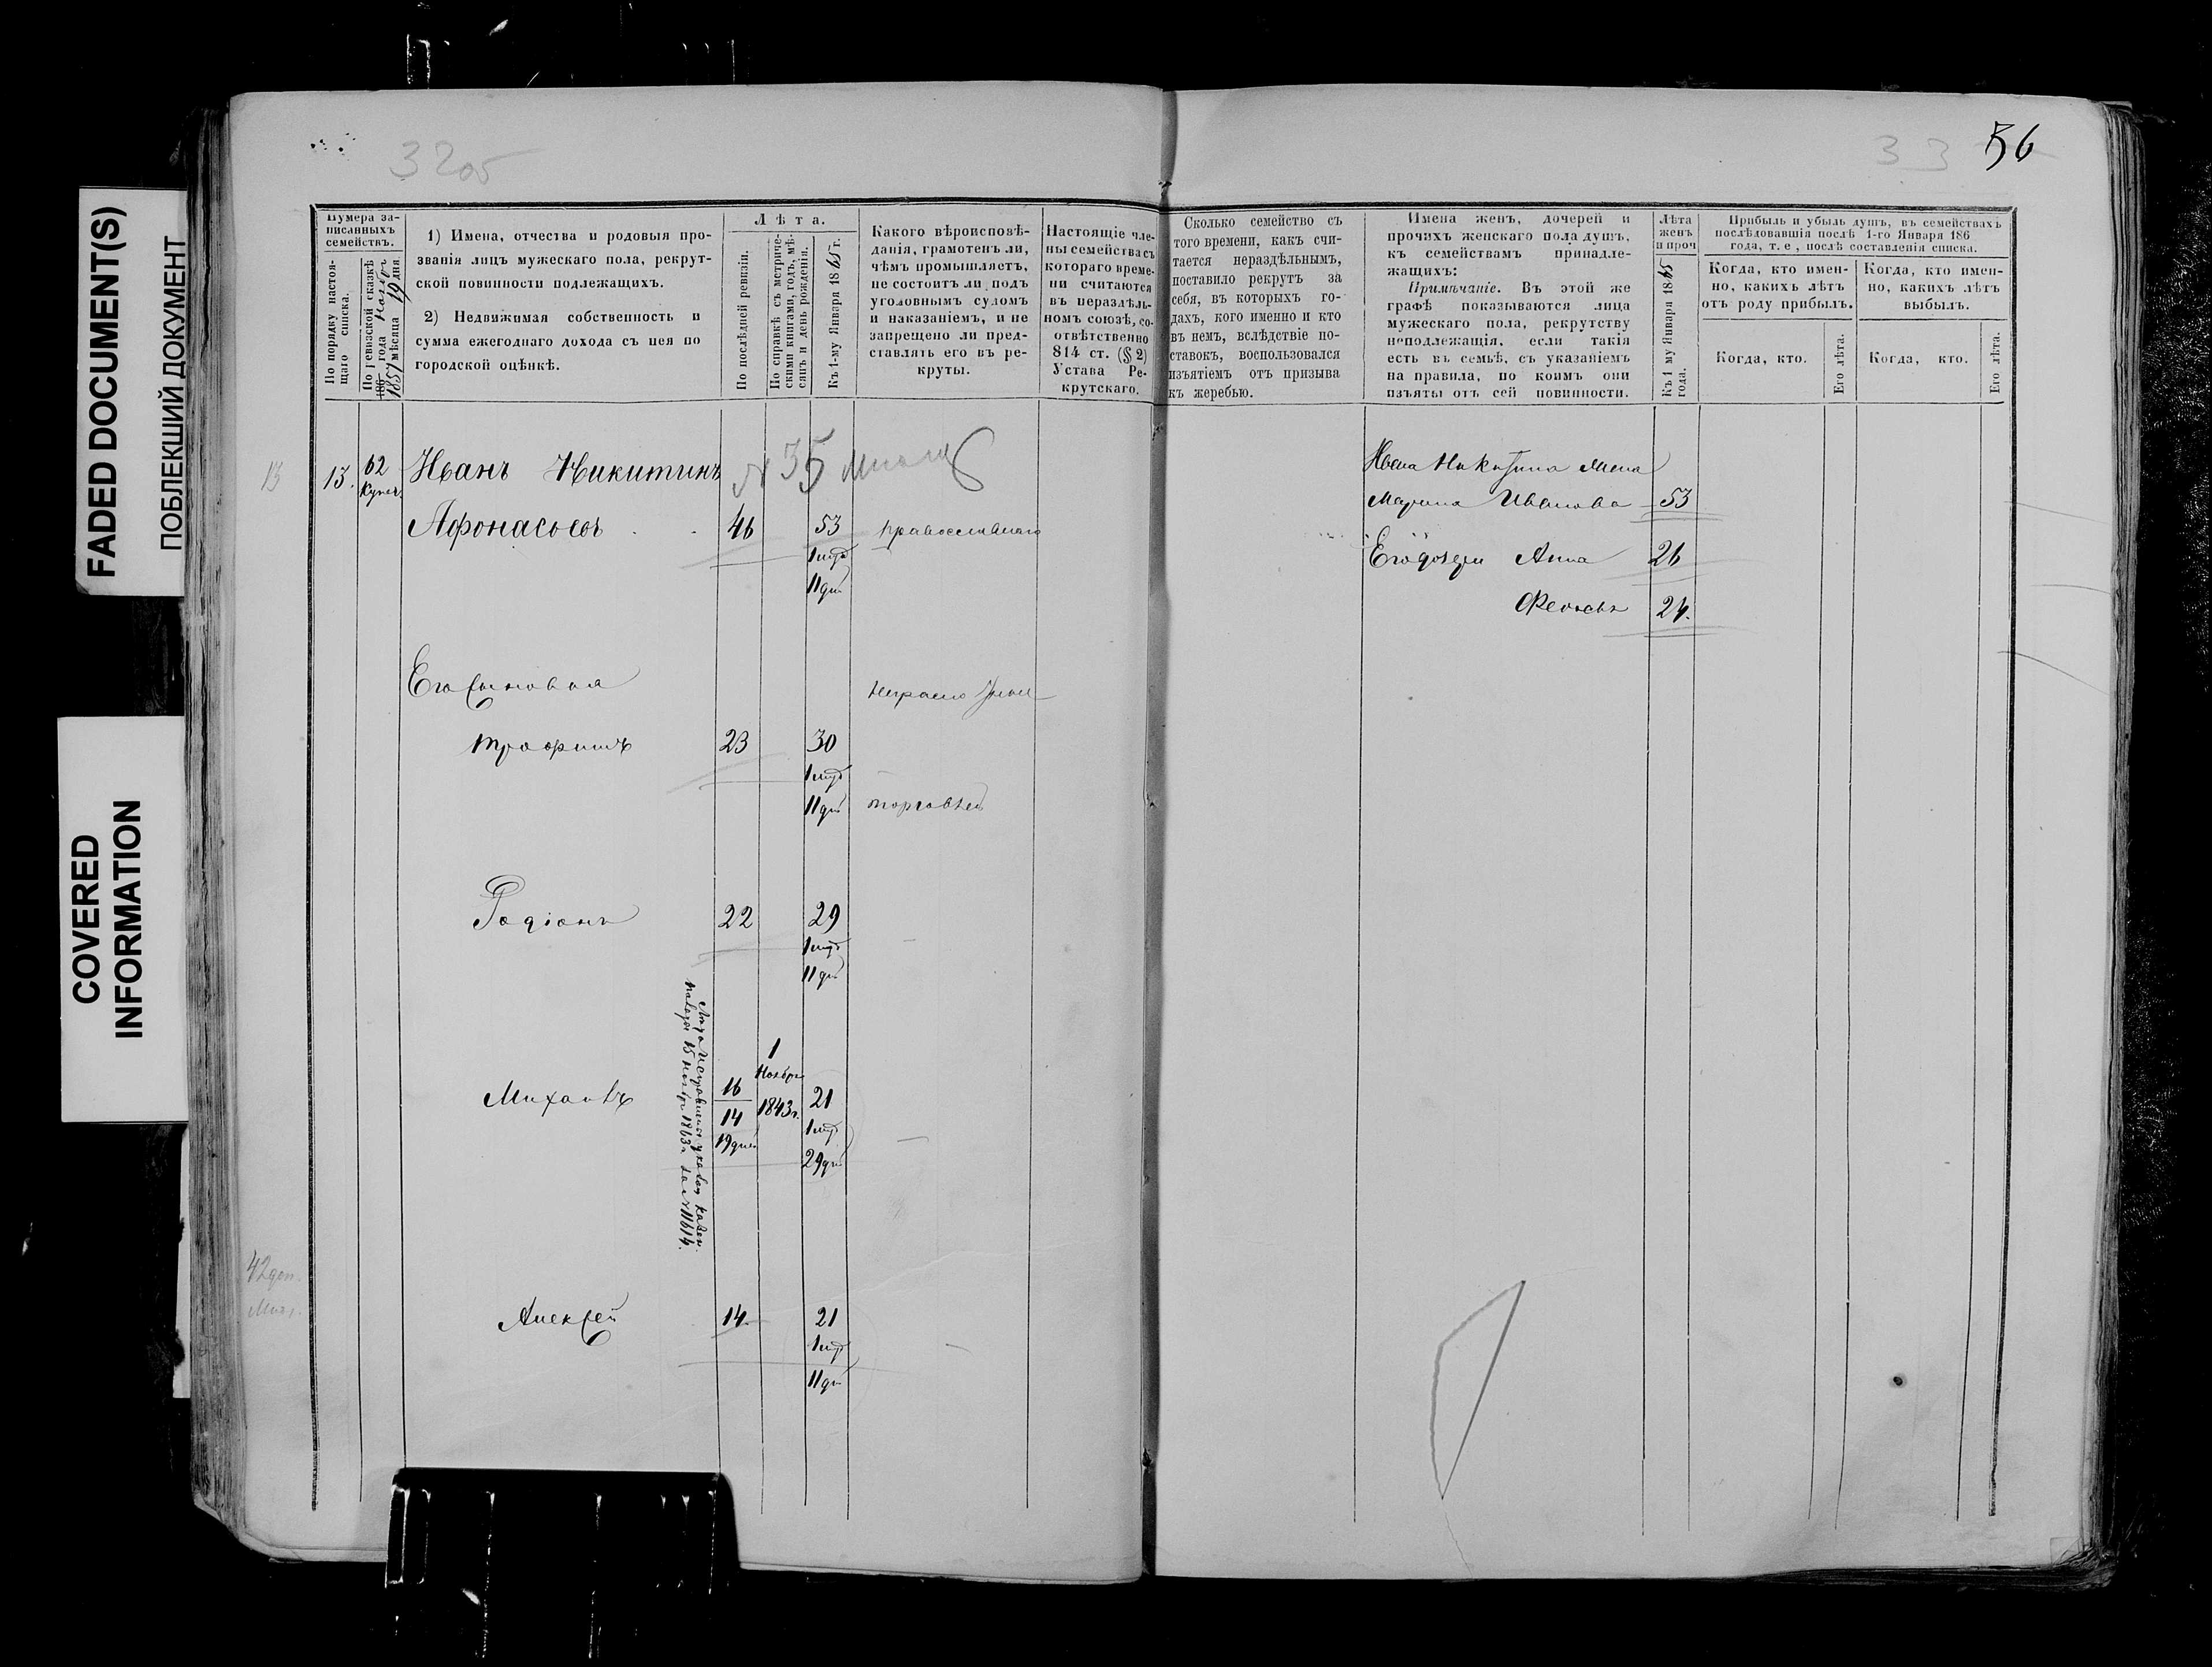 FADED DOCUMENT(S)
ПОБЛЕКШИЙ ДОКУМЕНТ
COVERED
INFORMATION
32об
33 56
Нумера за-
писанныхъ
семействъ.
По порядку настоя-
щаго списка.
По ревизской сказкѣ
186 года ноябр
1857 мѣсяца 19 дня.
1) Имена, отчества и родовыя про-
званія лицъ мужескаго пола, рекрут-
ской повинности подлежащихъ.
2) Недвижимая собственность и
сумма ежегоднаго дохода съ нея по
городской оцѣнкѣ.
Лѣта.
По послѣдней ревизіи.
По справкѣ съ метриче-
скими книгами, годъ, мѣ-
сяцъ и день рожденія.
Къ 1-му Января 1865 г.
Какого вѣроисповѣ-
данія, грамотенъ ли,
чѣмъ промышляетъ,
не состоитъ ли подъ
уголовнымъ судомъ
и наказаніемъ, и не
запрещено ли пред-
ставлять его въ ре-
круты.
Настоящіе чле-
ны семейства съ
котораго време-
ни считаются
въ нераздѣль-
номъ союзѣ, со-
отвѣтственно
814 ст. (§ 2)
Устава Ре-
крутскаго.
Сколько семейство съ
того времени, какъ счи-
тается нераздѣльнымъ,
поставило рекрутъ за
себя, въ которыхъ го-
дахъ, кого именно и кто
въ немъ, вслѣдствіе по-
ставокъ, воспользовался
изъятіемъ отъ призыва
къ жеребью.
Имена женъ, дочерей и
прочихъ женскаго пола душъ,
къ семействамъ принадле-
жащихъ:
Примѣчаніе. Въ этой же
графѣ показываются лица
мужескаго пола, рекрутству
неподлежащія, если такія
есть въ семьѣ, съ указаніемъ
на правила, по коимъ они
изъяты отъ сей повинности.
Лѣта
женъ
и проч
Къ 1 му Января 1865
года.
Прибыль и убыль душъ, въ семействахъ
послѣдовавшія послѣ 1-го Января 186
года, т. е, послѣ составленія списка.
Когда, кто имен-
но, какихъ лѣтъ
отъ роду прибылъ.
Когда, кто имен-
но, какихъ лѣтъ
выбылъ.
Когда, кто.
Его лѣта.
Когда, кто.
Его лѣта.
13 13. 62 Иванъ Никитинъ № 35
Купеч.
Афонасьевъ 46 53 православнаго
1 мцъ
11 дн
Его сыновья
неграмотны
Трофимъ 23 30
1 мцъ
11 дн торговлей
Родіонъ 22 29
1 мцъ
11 дн
Лѣта исправлены указом казен.
палаты 15 ноябр 1863 г. за № 11614.
Михаилъ 16 1 Ноября 1843 г. 21
14 1 мцъ
19 дней 29 дн
42 доп.
Алексей 14 21
1 мцъ
11 дн
Ивана Никитина жена
Марина Иванова 53
Его дочери Анна 26
24.